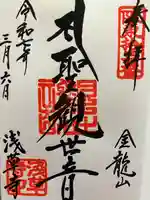 奉拝
金龍山
聖観世音
令和七年
三月六日
浅草寺